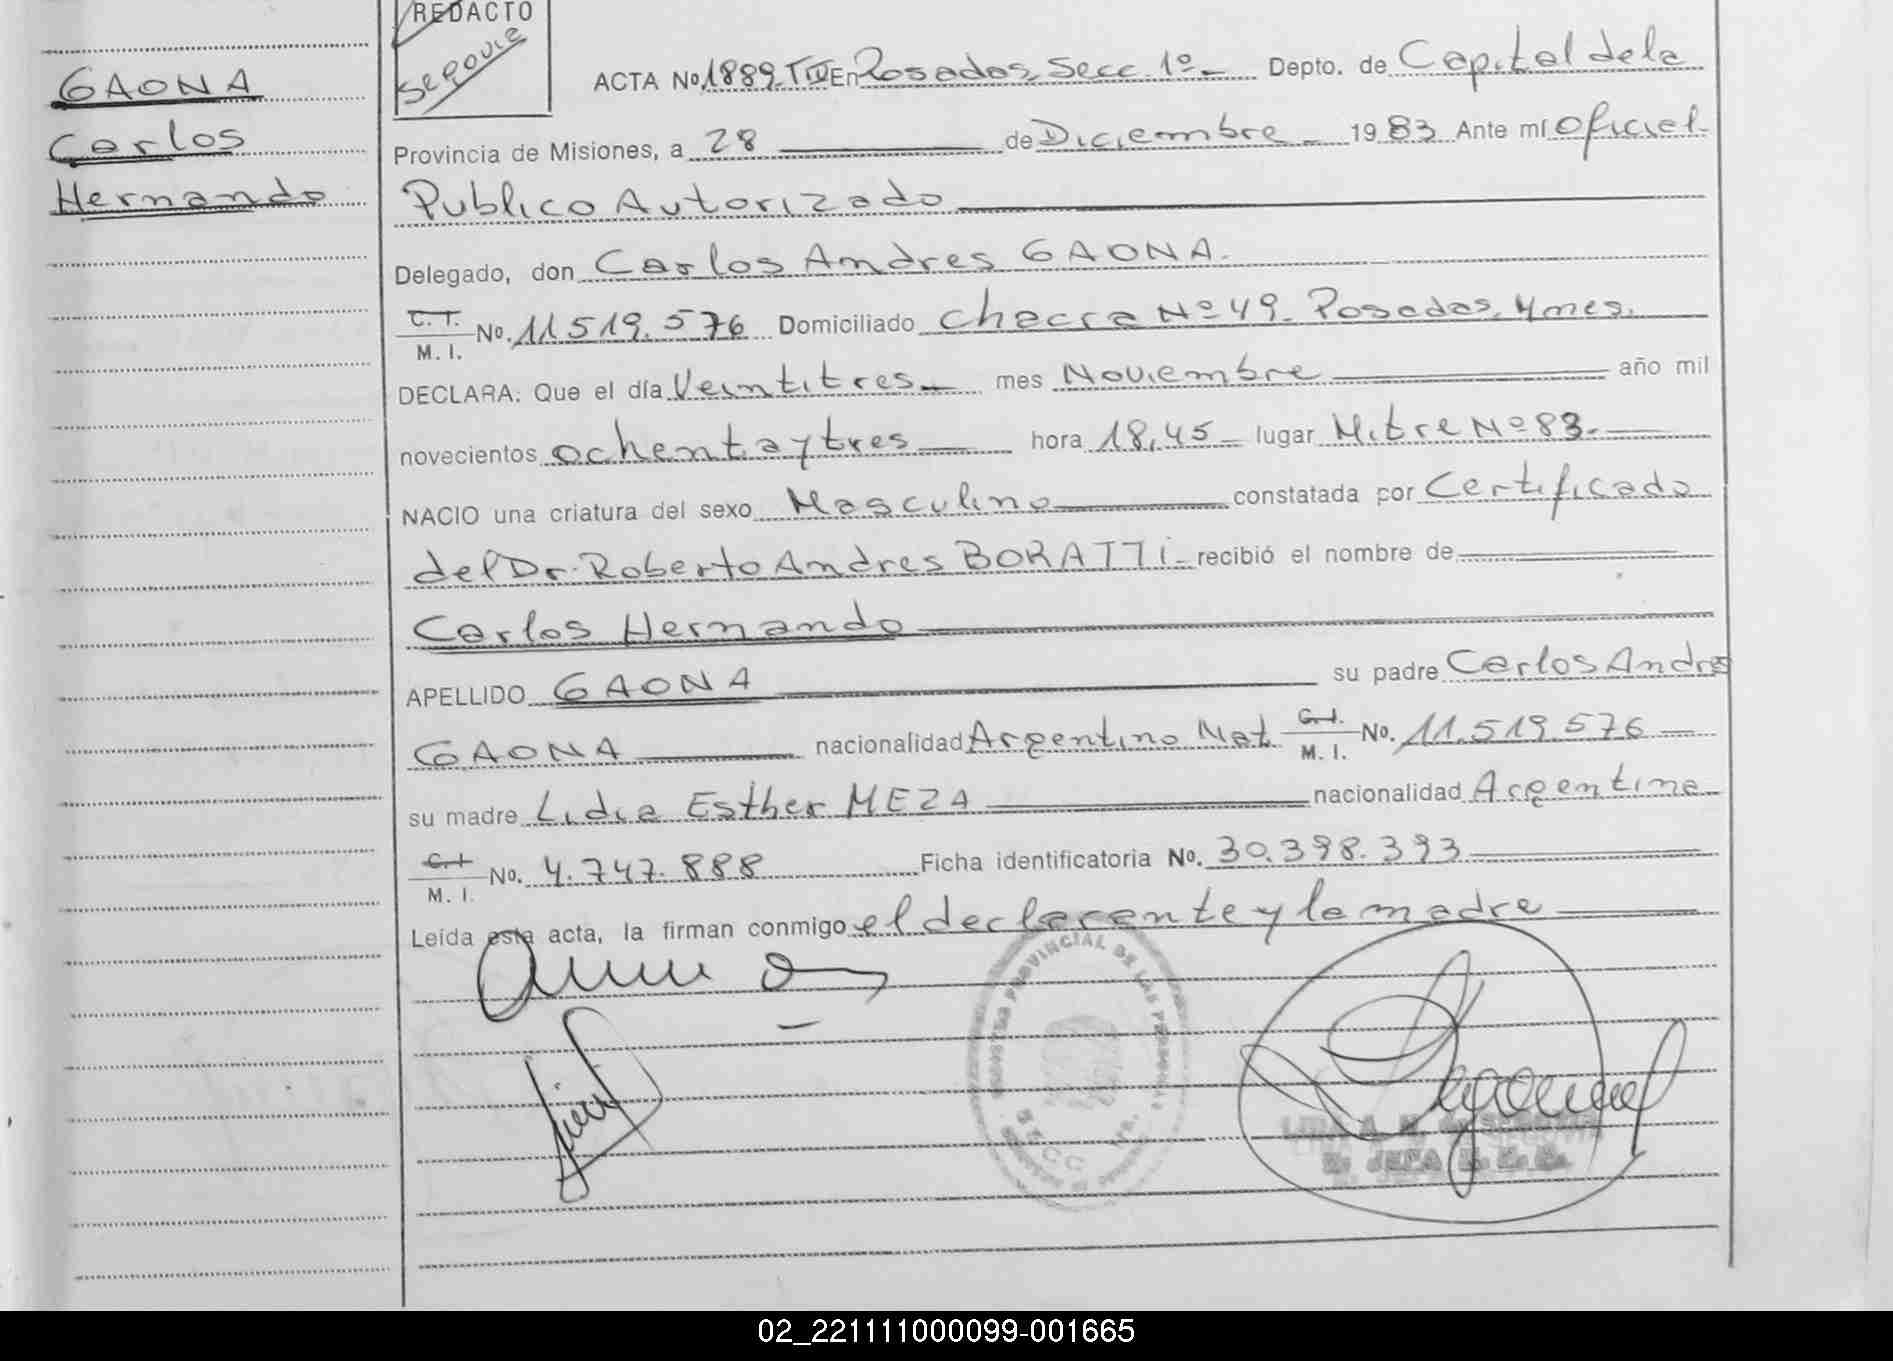 GAONA
Carlos
Hernando
REDACTO
Segovia
ACTA No 1889. TIV En Posadas, Secc. 1º - Depto. de Capital de la
Provincia de Misiones, a 28 de Diciembre - 1983 Ante mí Oficial
Publico Autorizado
Delegado, don Carlos Andres GAONA.
C. I. / M. I. No. 11.519.576 Domiciliado Chacra Nº 49 - Posadas, Mnes.
DECLARA: Que el día Veintitres - mes Noviembre año mil
novecientos ochenta y tres hora 18,45 - lugar Mitre Nº 83. -
NACIO una criatura del sexo Masculino constatada por Certificado
del Dr. Roberto Andres BORATTI - recibió el nombre de
Carlos Hernando
APELLIDO GAONA su padre Carlos Andres
GAONA nacionalidad Argentino Nat. C. I. / M. I. No. 11.519.576
su madre Lidia Esther MEZA nacionalidad Argentina
C. I. / M. I. No. 4.747.888 Ficha identificatoria No. 30.398.393
Leída esta acta, la firman conmigo el declarante y la madre
PROVINCIAL DE LAS PERSONAS
SECC
JEFA
02_221111000099-001665